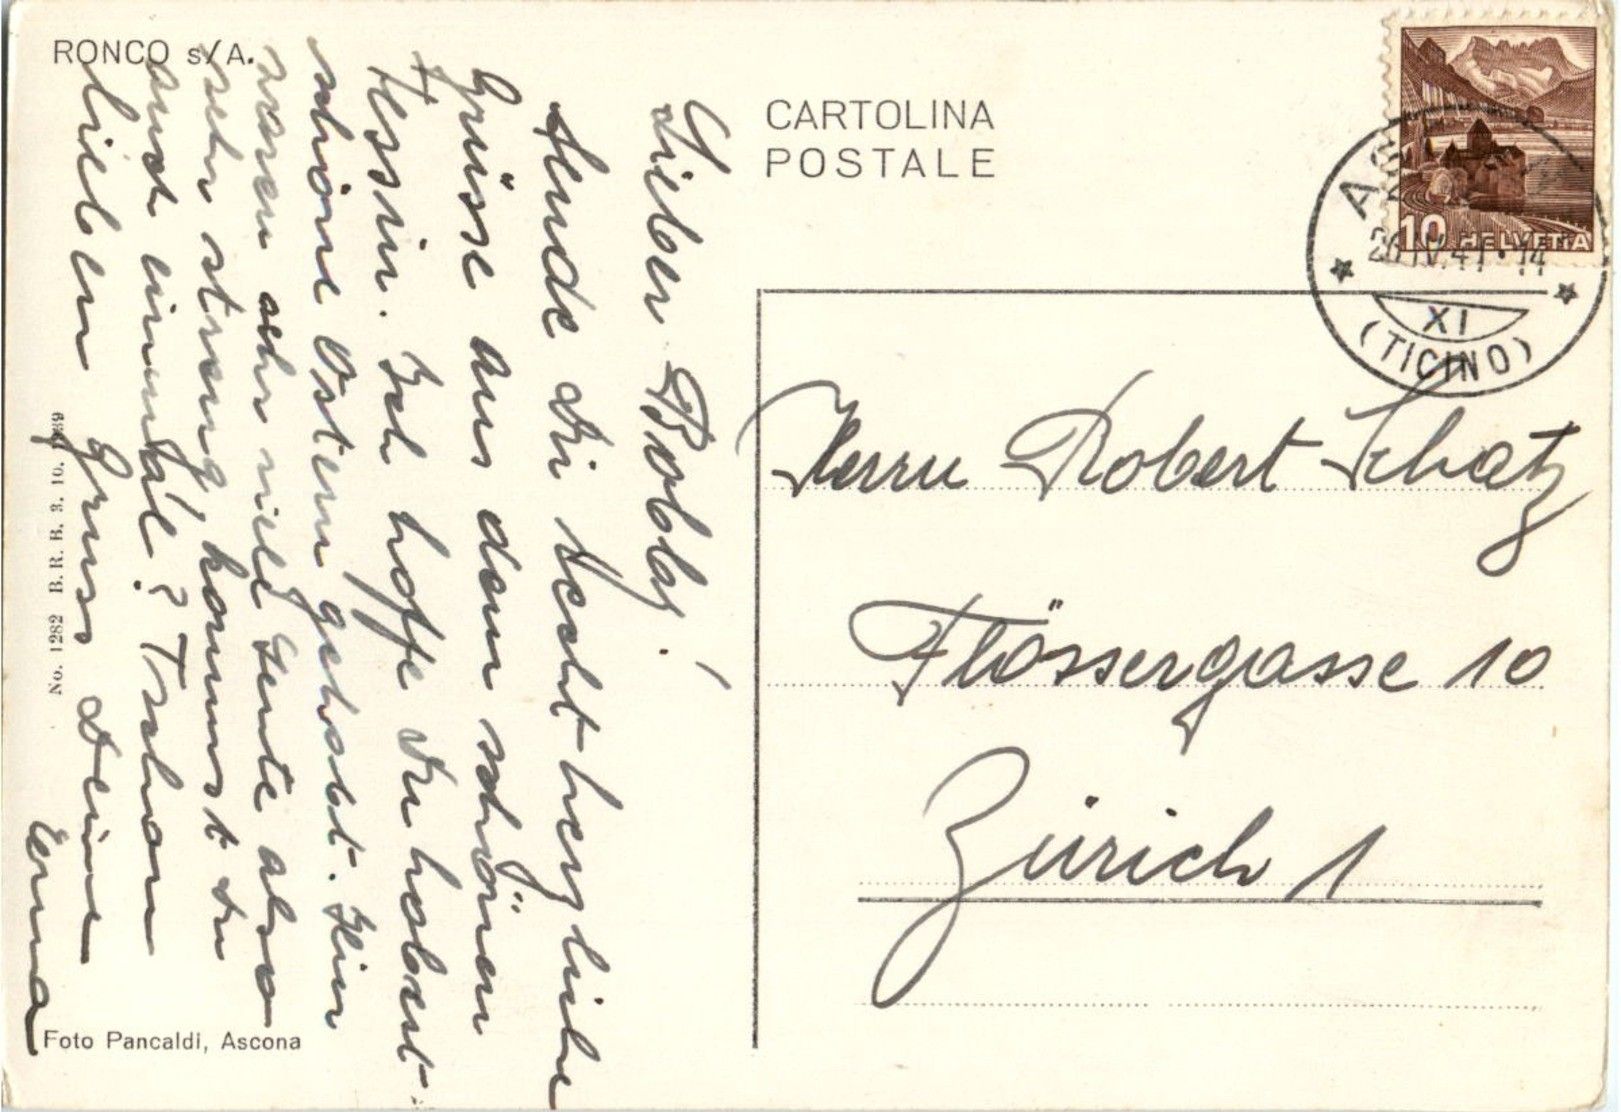 RONCO s/A.
CARTOLINA
POSTALE
10 HELVETIA
26.IV.41•14
XI
(TICINO)
Lieber Bobby!
Sende Dir recht herzliche
Grüsse aus dem schönen
Tessin. Ich hoffe Du habest
schöne Ostern gehabt. Hier
waren sehr viele Leute also
sehr streng, kommst Du
auch einmal? Tschau
lieben Gruss Deine
Erna
Herrn Robert Schatz
Flössergasse 10
Zürich 1
No. 1282 B. R. B. 3. 10. 1939
Foto Pancaldi, Ascona